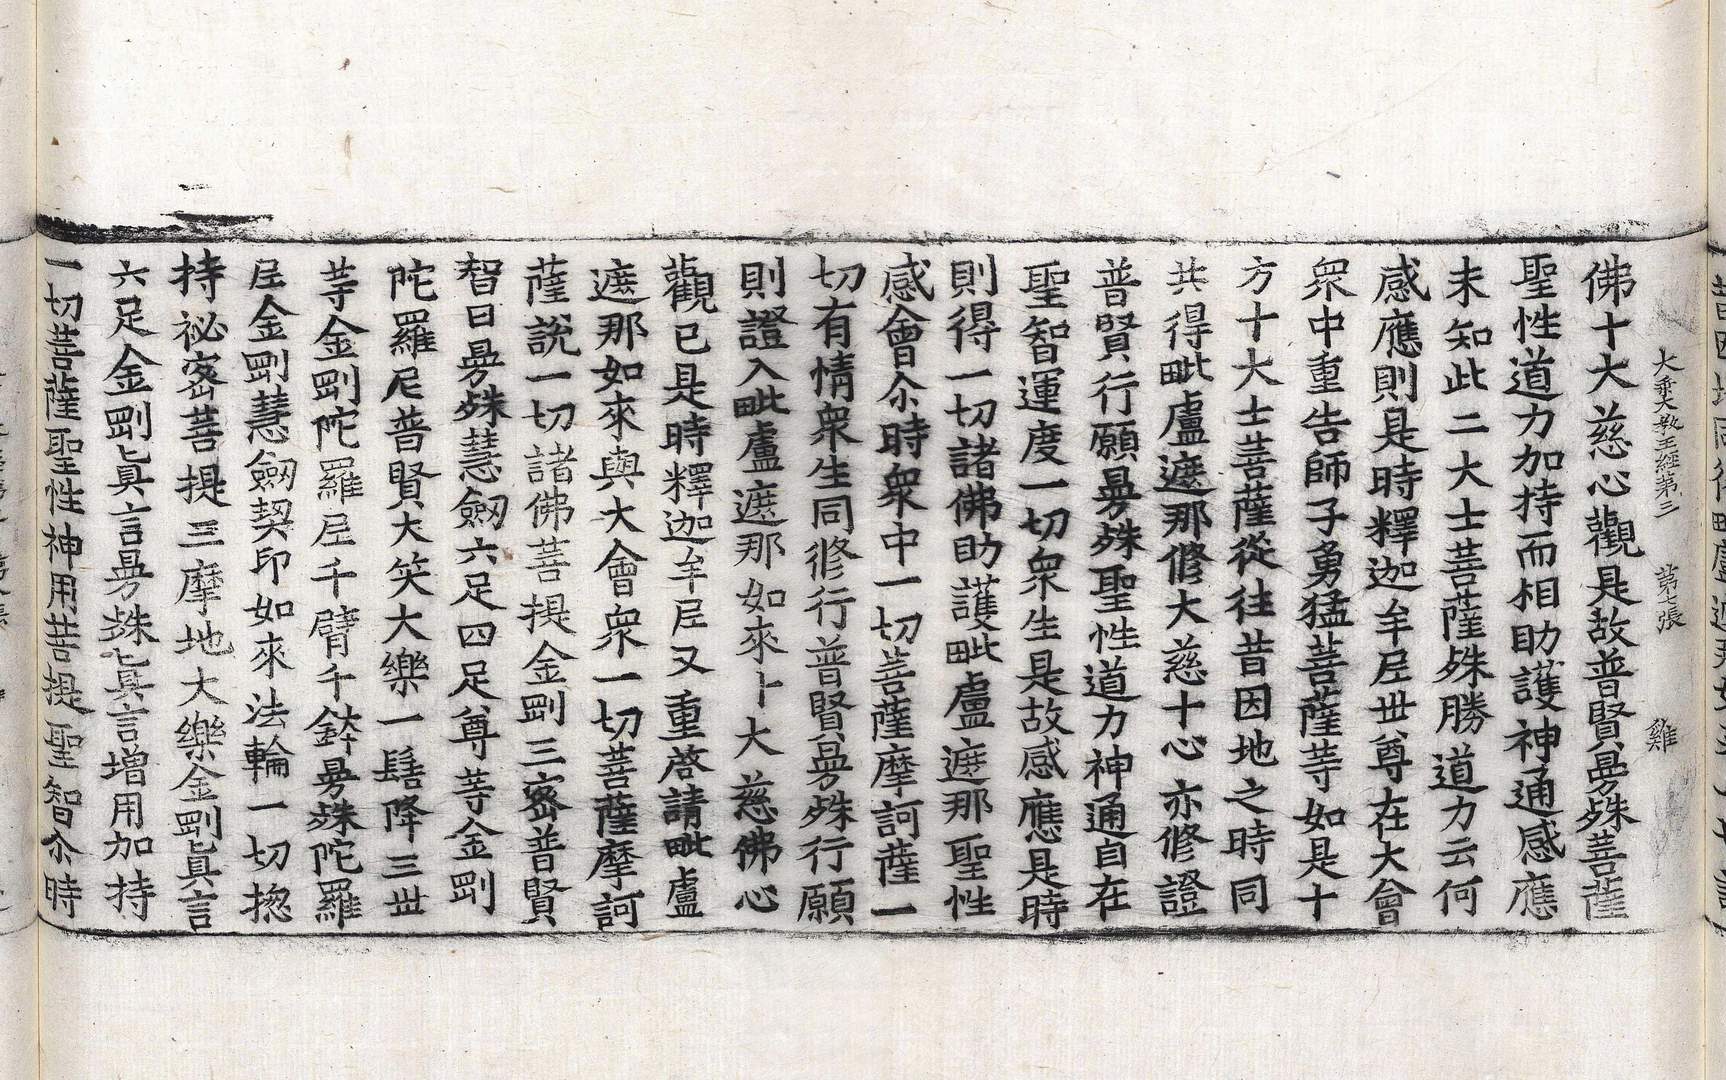 大乘大教王經第三 第七張 雞
佛十大慈心觀是故普賢曼殊菩薩
聖性道力加持而相助護神通感應
未知此二大士菩薩殊勝道力云何
感應則是時釋迦牟尼世尊在大會
衆中重告師子勇猛菩薩等如是十
方十大士菩薩從往昔因地之時同
共得毗盧遮那修大慈十心亦修證
普賢行願曼殊聖性道力神通自在
聖智運度一切衆生是故感應是時
則得一切諸佛助護毗盧遮那聖性
感會尒時衆中一切菩薩摩訶薩一
切有情衆生同修行普賢曼殊行願
則證入毗盧遮那如來十大慈佛心
觀已是時釋迦牟尼又重啓請毗盧
遮那如來與大會衆一切菩薩摩訶
薩說一切諸佛菩提金剛三密普賢
智曰曼殊慧劒六足四足尊等金剛
陀羅尼普賢大笑大樂一髻降三世
等金剛陀羅尼千臂千鉢曼殊陀羅
尼金剛慧劒契印如來法輪一切揔
持祕密菩提三摩地大樂金剛眞言
六足金剛眞言曼殊眞言增用加持
一切菩薩聖性神用菩提聖智尒時